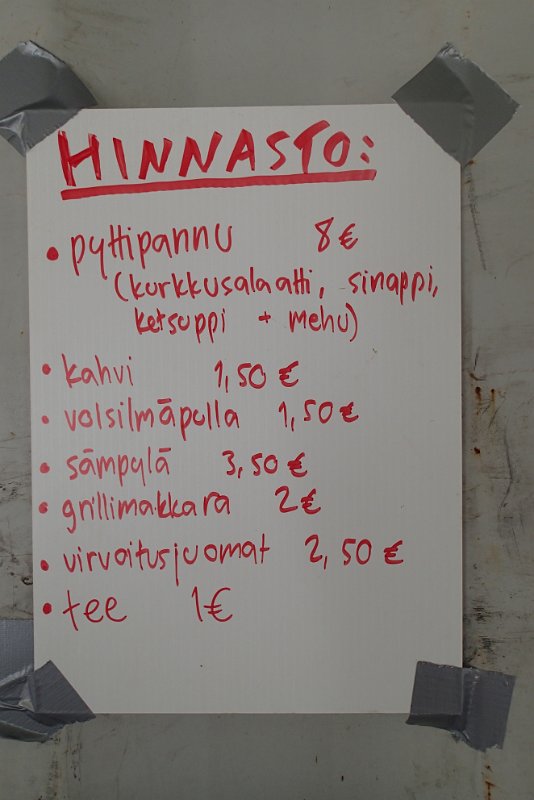 HINNASTO:
• pyttipannu 8€
(kurkkusalaatti, sinappi,
ketsuppi + mehu)
• kahvi 1,50€
• voisilmäpulla 1,50€
• sämpylä 3,50€
• grillimakkara 2€
• virvoitusjuomat 2,50€
• tee 1€